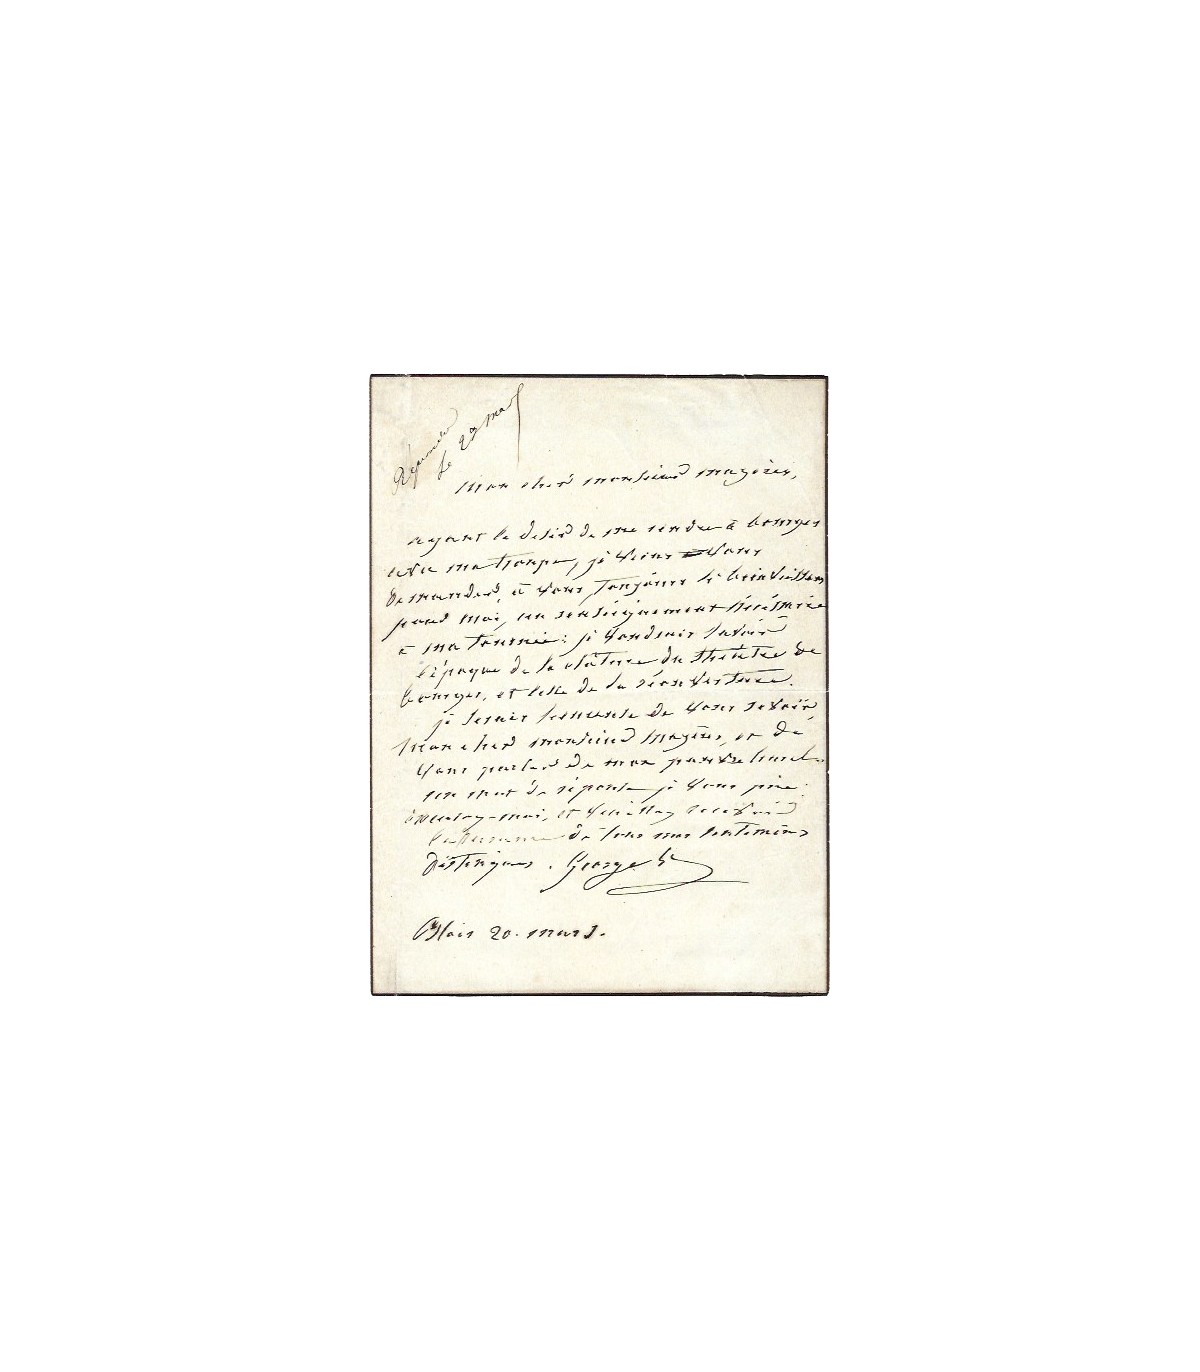 Répondu
le 29 mars
Mon cher monsieur mazères,
ayant le desir de me rendre à bourges
avec ma troupe, je viens vous
demander, à vous toujours si bienveillant
pour moi, un renseignement nécessaire
à ma tournée: je voudrais savoir
l'époque de la clôture du théâtre de
bourges, et celle de la réouverture.
je serais heureuse de vous revoir,
Mon cher monsieur Mazères, et de
vous parler de mon pauvre
un mot de réponse je vous prie:
excusez-moi, et veuillez recevoir
l'assurance de tous mes sentimens
distingués. George
Blois 20. mars.